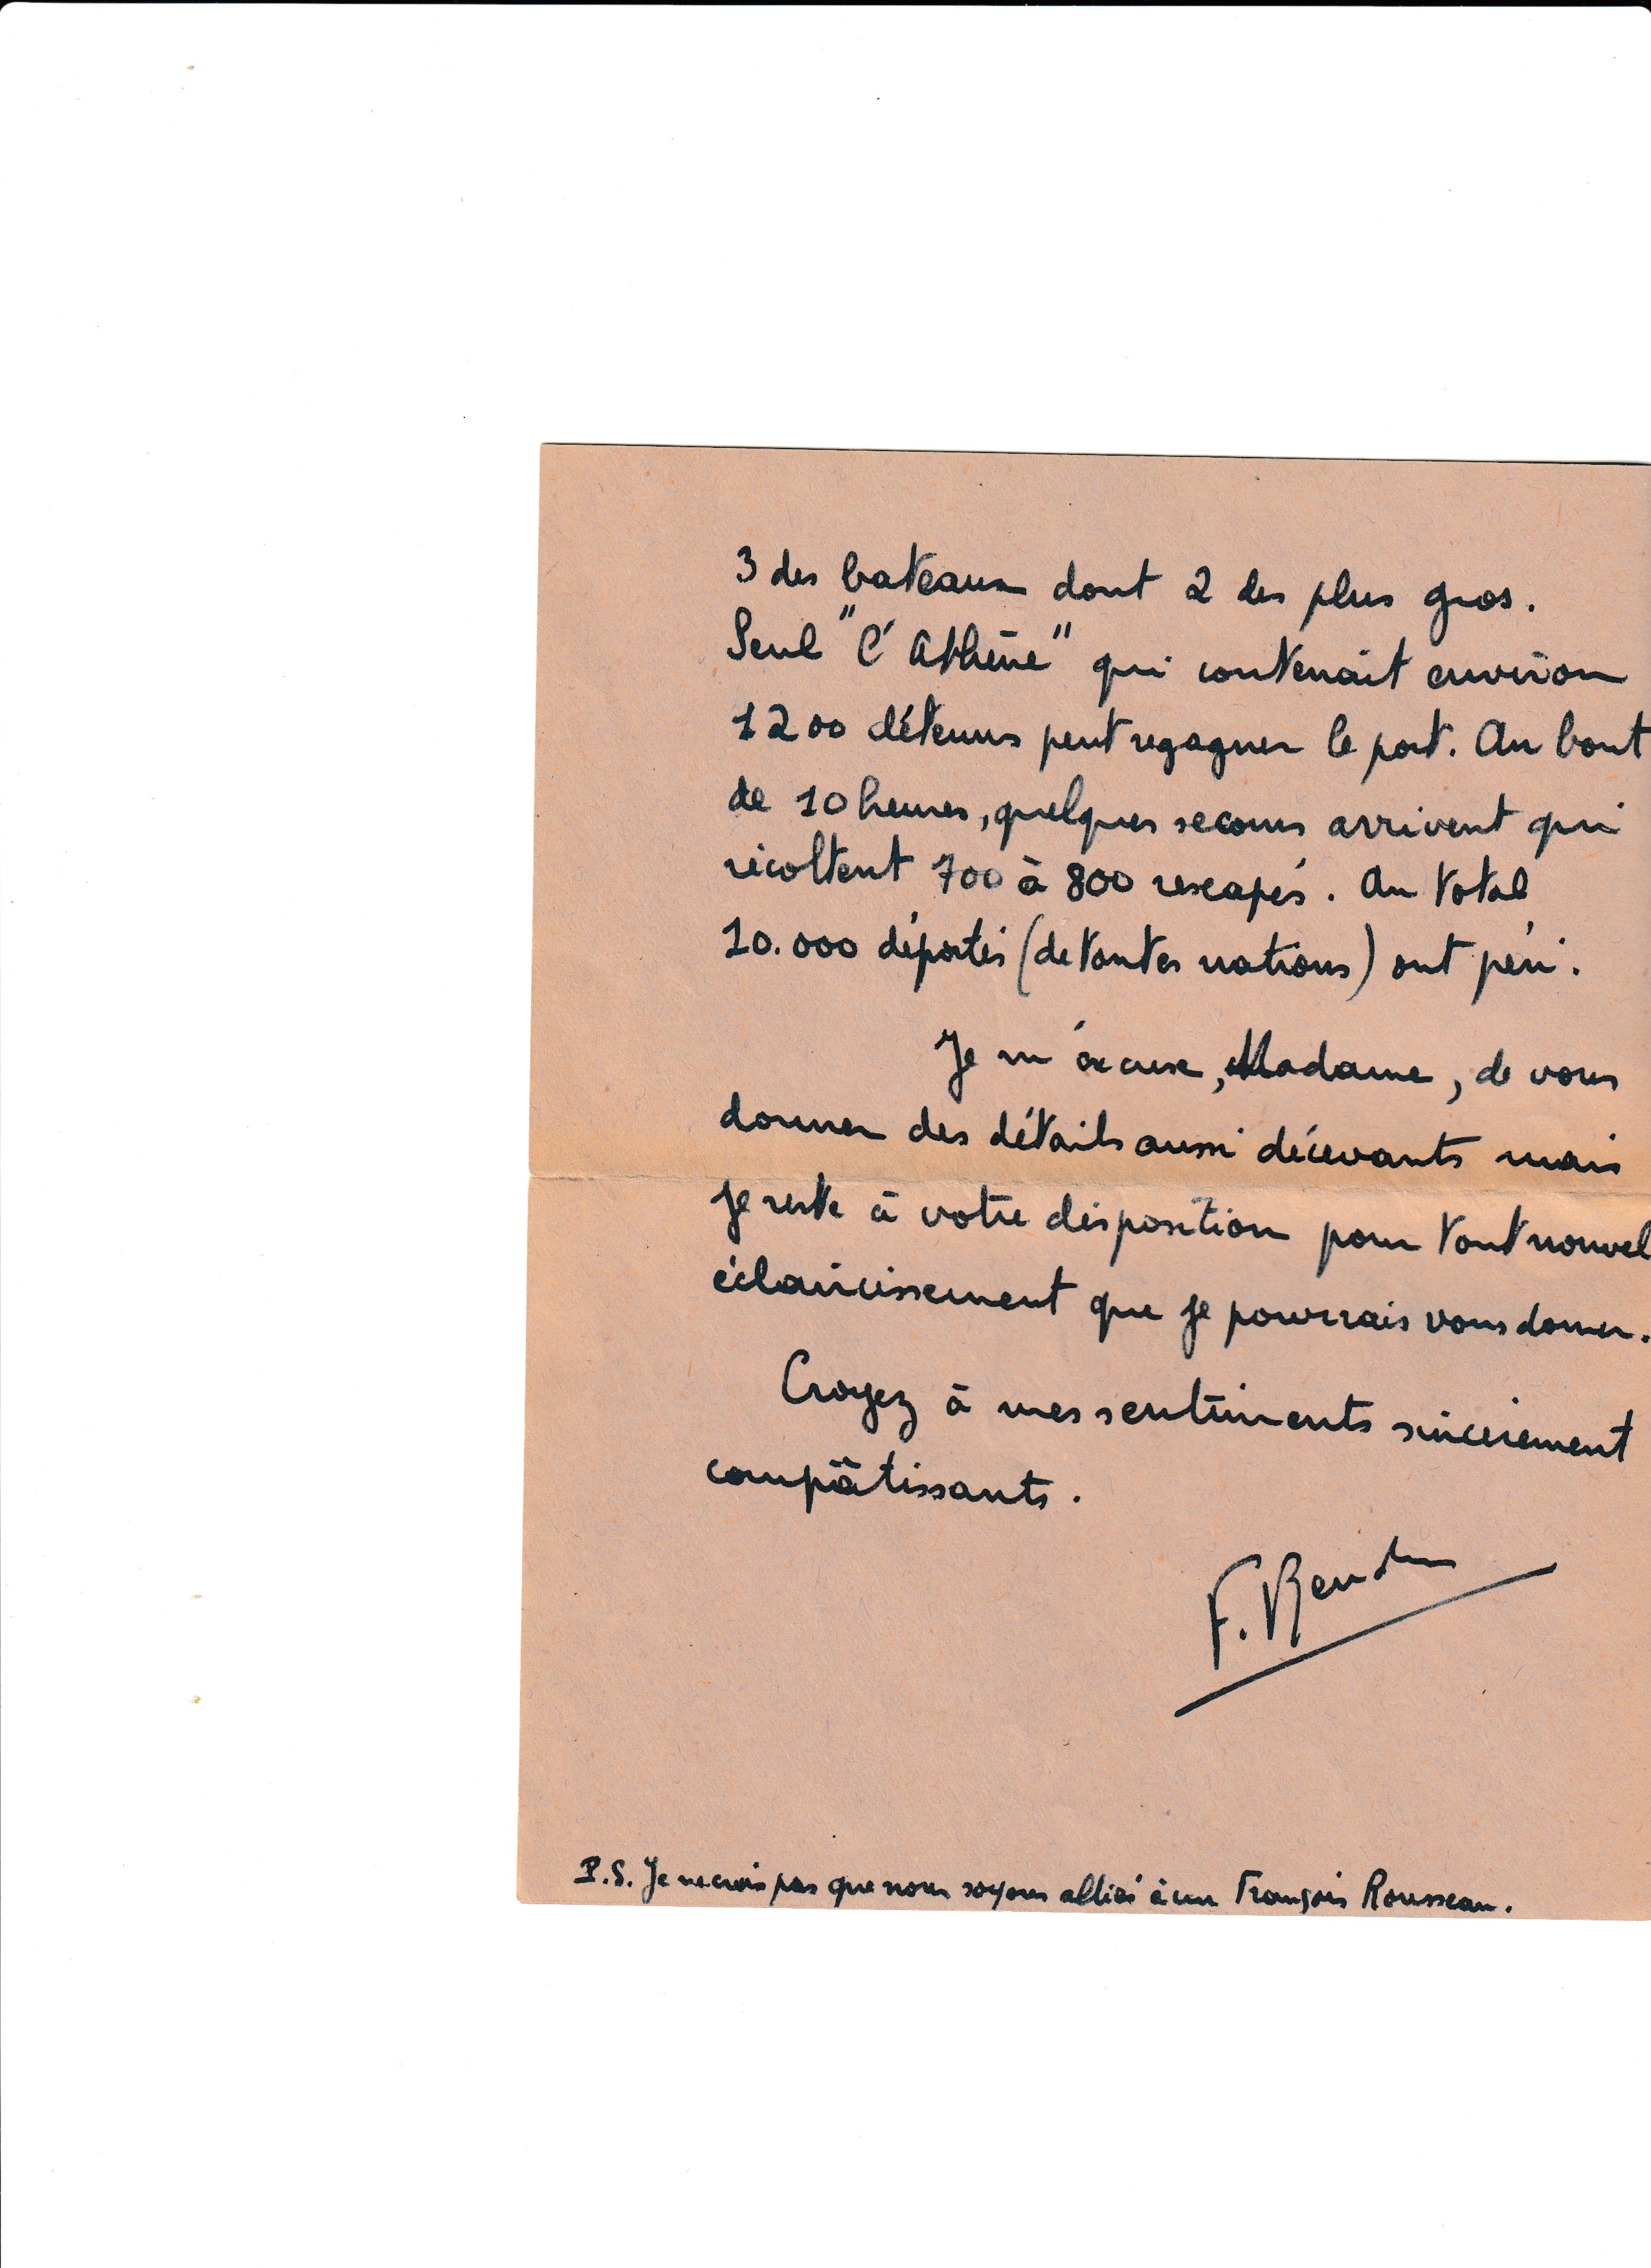 3 des bateaux dont 2 des plus gros.
Seul "l'Athène" qui contenait environ
1200 détenus peut regagner le port. Au bout
de 10 heures, quelques secours arrivent qui
récoltent 700 à 800 rescapés. Au total
10.000 déportés (de toutes nations) ont péri.
Je m'excuse, Madame, de vous
donner des détails aussi décevants mais
je reste à votre disposition pour tout nouvel
éclaircissement que je pourrais vous donner.
Croyez à mes sentiments sincèrement
compâtissants.
F.
P.S. Je ne crois pas que nous soyons alliés à un François Rousseau.